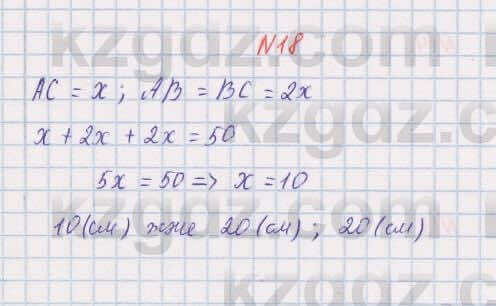 kzgdz.com
N18
AC = x; AB = BC = 2x
x + 2x + 2x = 50
5x = 50 => x = 10
10 (см) және 20 (см); 20 (см)